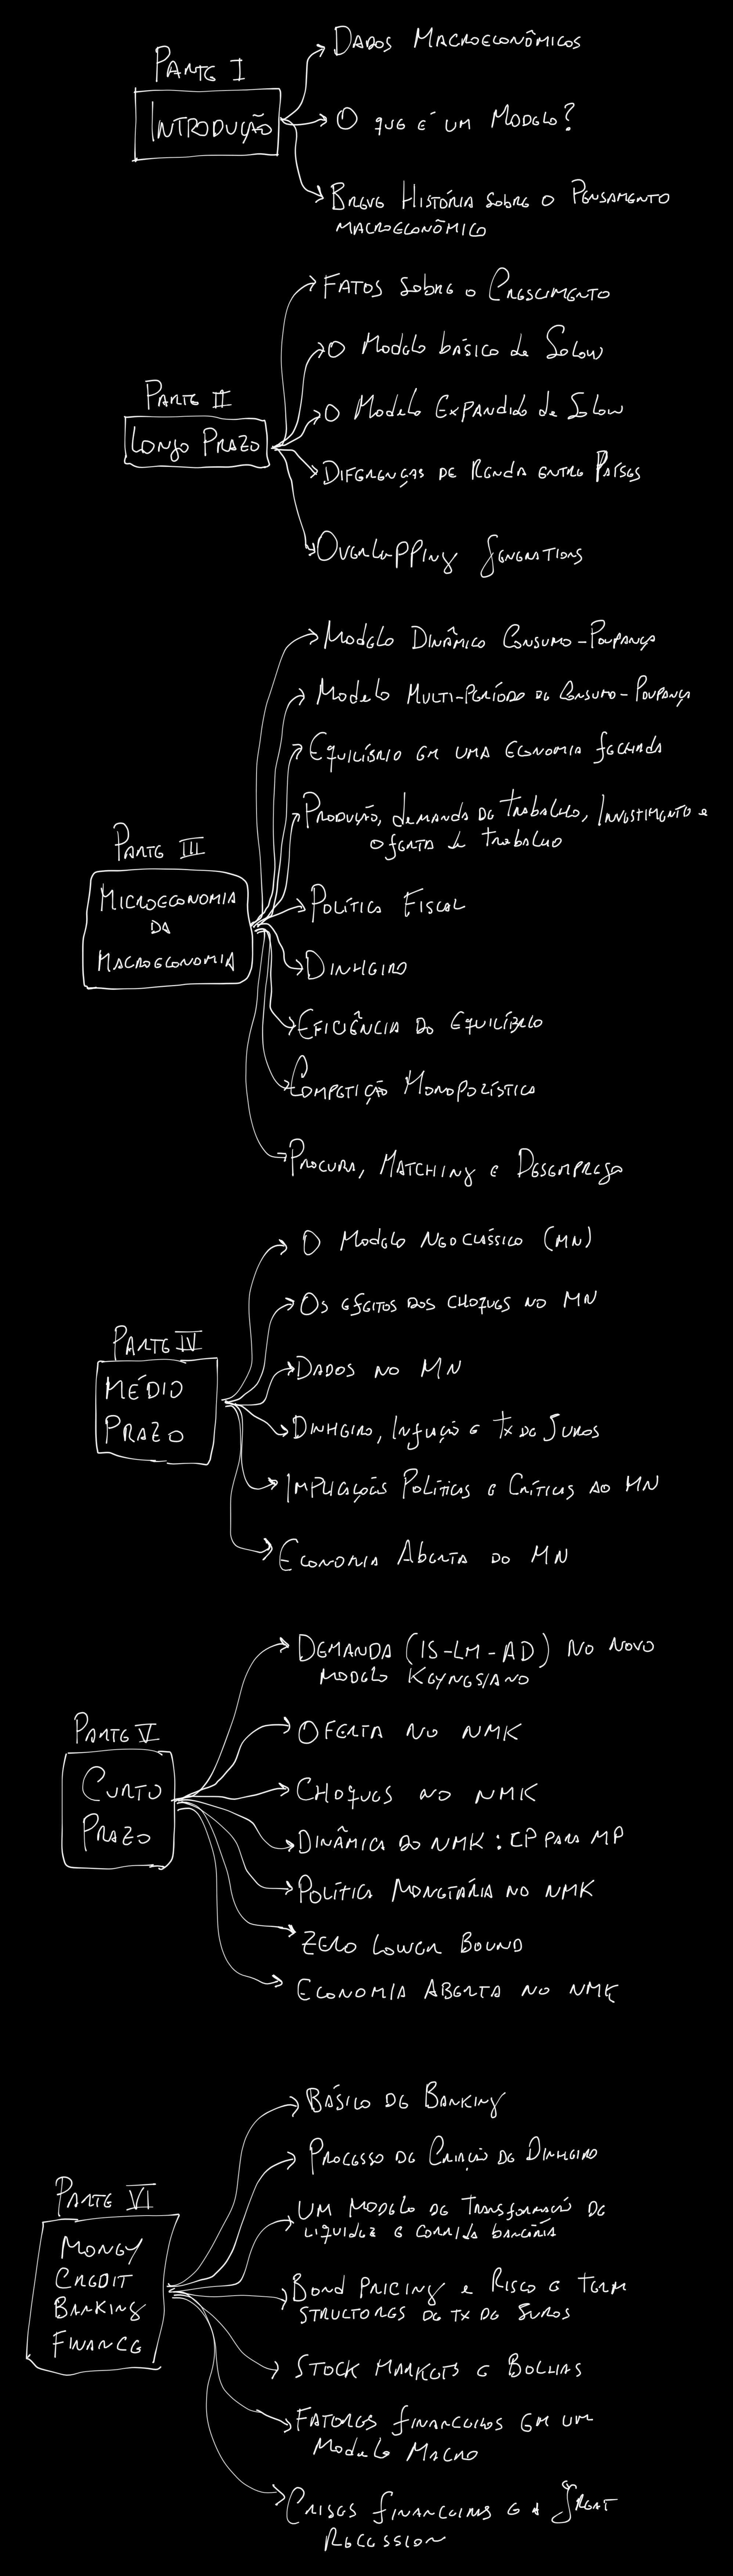 Parte I
Introdução
Dados Macroeconômicos
O que é um Modelo?
Breve História sobre o Pensamento
macroeconômico
Parte II
Longo Prazo
Fatos sobre o Crescimento
O Modelo básico de Solow
O Modelo Expandido de Solow
Diferenças de Renda entre Países
Overlapping Generations
Parte III
Microeconomia
da
Macroeconomia
Modelo Dinâmico Consumo-Poupança
Modelo Multi-Período de Consumo-Poupança
Equilíbrio em uma Economia fechada
Produção, demanda de trabalho, Investimento e
Oferta de trabalho
Política Fiscal
Dinheiro
Eficiência do Equilíbrio
Competição Monopolística
Procura, Matching e Desemprego
Parte IV
Médio
Prazo
O Modelo Neoclássico (MN)
Os efeitos dos choques no MN
Dados no MN
Dinheiro, Inflação e Tx de Juros
Implicações Políticas e Críticas ao MN
Economia Aberta do MN
Parte V
Curto
Prazo
Demanda (IS-LM-AD) no novo
modelo Keynesiano
Oferta no NMK
Choques no NMK
Dinâmica do NMK: CP para MP
Política Monetária no NMK
Zero Lower Bound
Economia Aberta no NMK
Parte VI
Money
Credit
Banking
Finance
Básico de Banking
Processo de Criação de Dinheiro
Um Modelo de Transformação de
liquidez e corrida bancária
Bond pricing e Risco e term
structures de tx de Juros
Stock Markets e Bolhas
Fatores financeiros em um
Modelo Macro
Crises financeiras e a Great
Recession